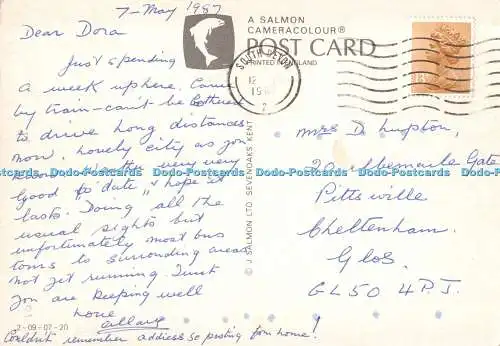 7-May 1987
Dear Dora
Just spending
a week up here. Came
by train - can't be bothered
to drive long distances
now. Lovely city as you
know. Weather very very
good to date, hope it
lasts. Doing all the
usual sights but
unfortunately most bus
tours to surrounding areas
not yet running. Trust
you are keeping well
love
Couldn't remember address so posting from home!
2-09-07-20
© J SALMON LTD SEVENOAKS KENT
A SALMON
CAMERACOLOUR®
POST CARD
PRINTED IN ENGLAND
SOUTH DEVON
12
19
2
13
Mrs D. Lupton,
Gate
Pittsville
Cheltenham.
Glos.
GL50 4PJ.
Dodo-Postcards Dodo-Postcards Dodo-Postcards Dodo-Postcards